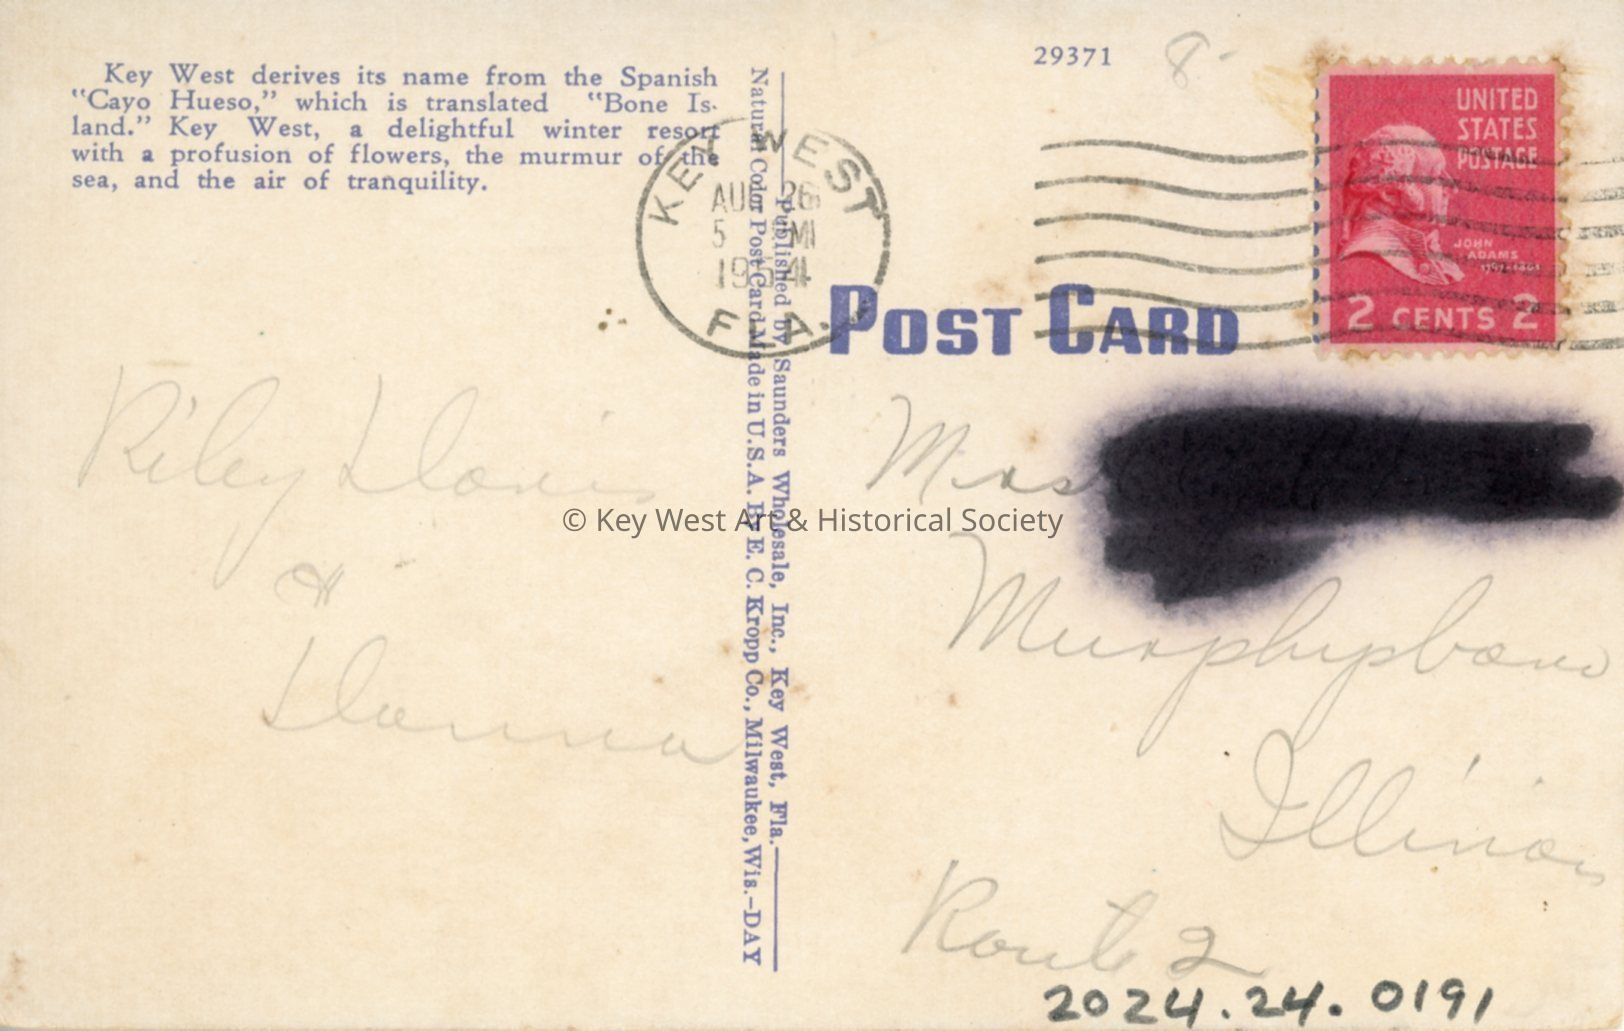 Key West derives its name from the Spanish
"Cayo Hueso," which is translated "Bone Is-
land." Key West, a delightful winter resort
with a profusion of flowers, the murmur of the
sea, and the air of tranquility.
Riley Davis
&
Donna
Natural Color Post Card Made in U.S.A. By E. C. Kropp Co., Milwaukee, Wis.-DAY
Published by Saunders Wholesale, Inc., Key West, Fla.
KEY WEST
AUG 26
5 PM
1954
FLA.
29371
8
UNITED
STATES
POSTAGE
JOHN
ADAMS
1797-1801
2 CENTS 2
POST CARD
Mrs
Murphysboro
Illinois
Route 2
2024.24.0191
© Key West Art & Historical Society